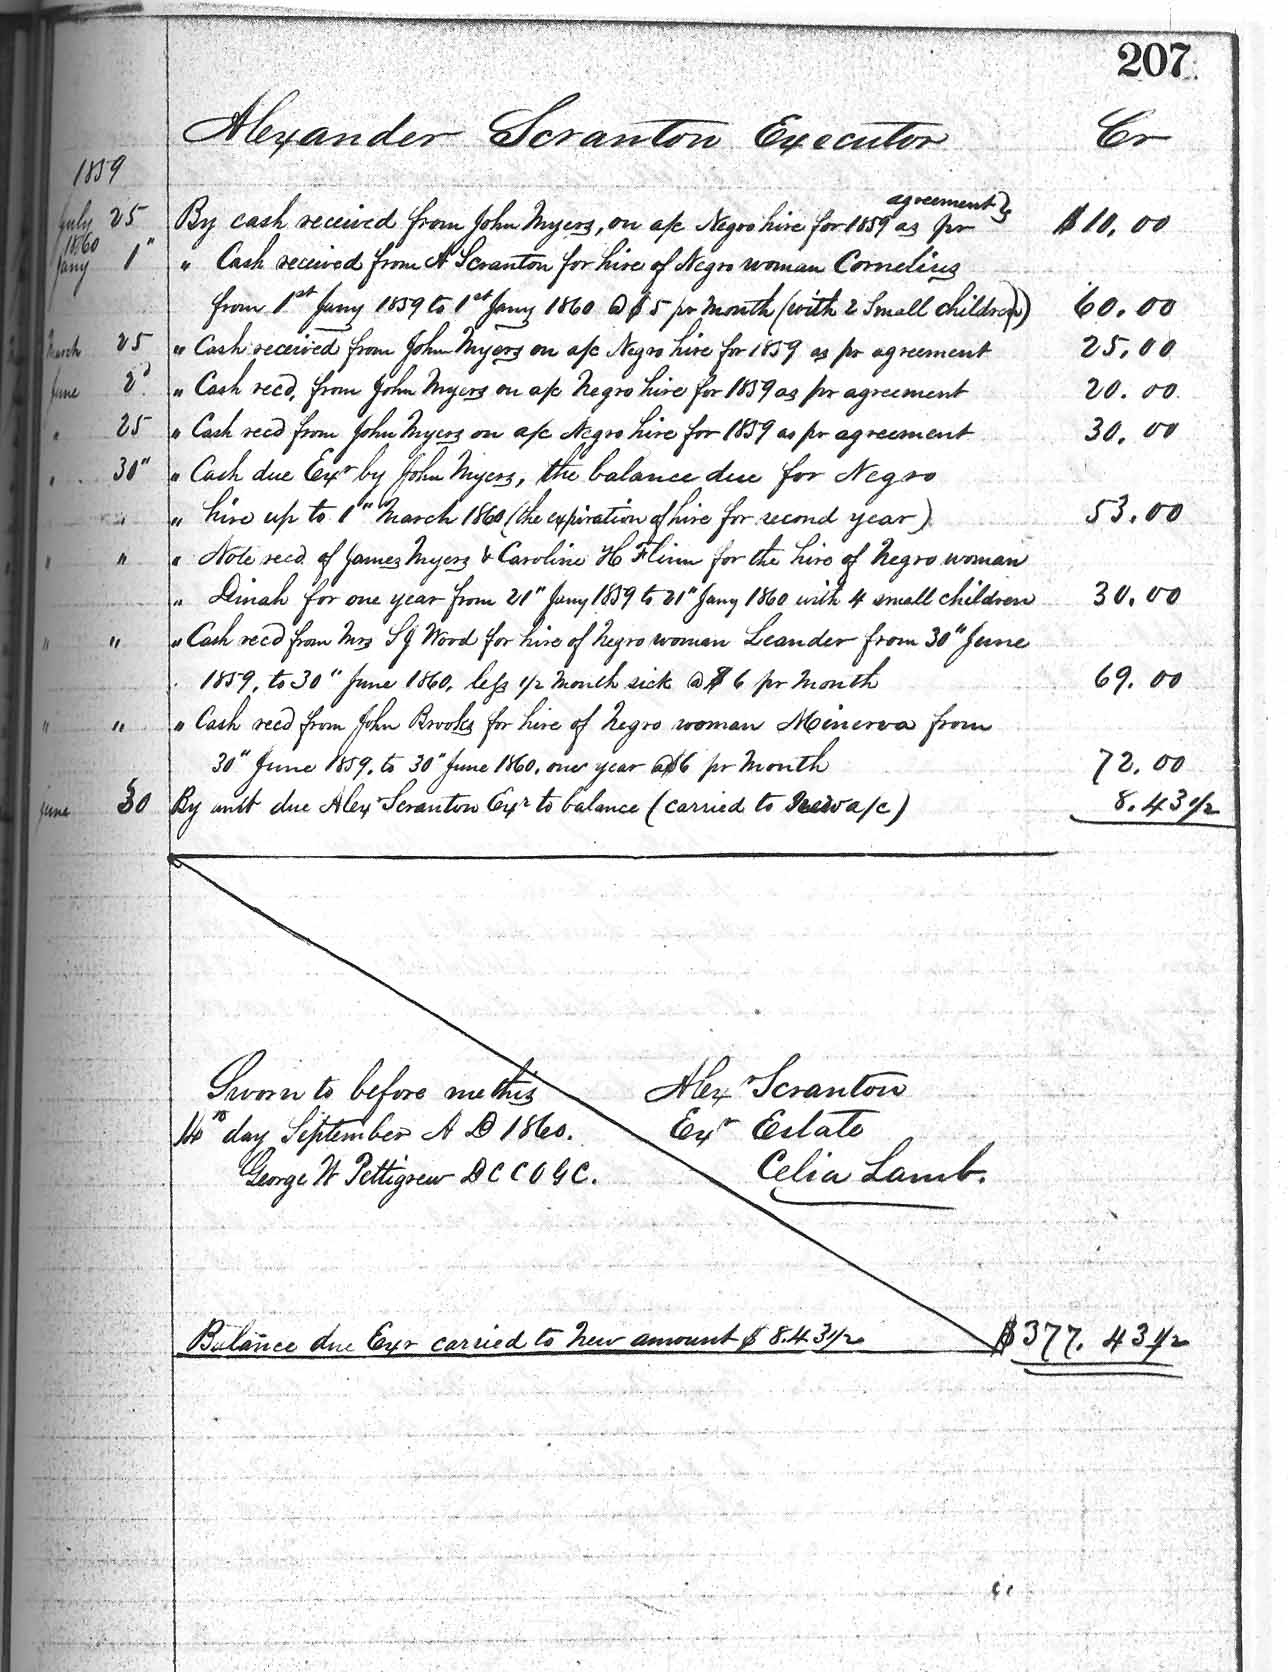 207
Alexander Scranton Executor Cr
1859
July 25 By cash received from John Myers, on a/c Negro hire for 1859 as pr agreement $10.00
1860
Jany 1" " Cash received from A Scranton for hire of Negro woman Cornelius
from 1st Jany 1859 to 1st Jany 1860 @ $5 pr Month (with 2 Small children) 60.00
March 25 " Cash received from John Myers on a/c Negro hire for 1859 as pr agreement 25.00
June 2d " Cash recd, from John Myers on a/c Negro hire for 1859 as pr agreement 20.00
" 25 " Cash recd from John Myers on a/c Negro hire for 1859 as pr agreement 30.00
" 30" " Cash due Exr by John Myers, the balance due for Negro
" " hire up to 1" March 1860 (the expiration of hire for second year) 53.00
" " " Note recd of James Myers & Caroline H Flinn for the hire of Negro woman
" Dinah for one year from 21" Jany 1859 to 21" Jany 1860 with 4 small children 30.00
" " " Cash recd from Mrs S J Wood for hire of Negro woman Leander from 30" June
1859, to 30" June 1860, less 1/2 Month sick @ $6 pr Month 69.00
" " " Cash recd from John Brooks for hire of Negro woman Minerva from
30" June 1859, to 30" June 1860, one year @$6 pr Month 72.00
June 30 By amt due Alexr Scranton Exr to balance (carried to New a/c) 8.43 1/2
Sworn to before me this Alexr Scranton
14th day September A D 1860. Exr Estate
George W Pettigrew D C C O G C. Celia Lamb.
Balance due Exr carried to New amount $ 8.43 1/2 $377.43 1/2